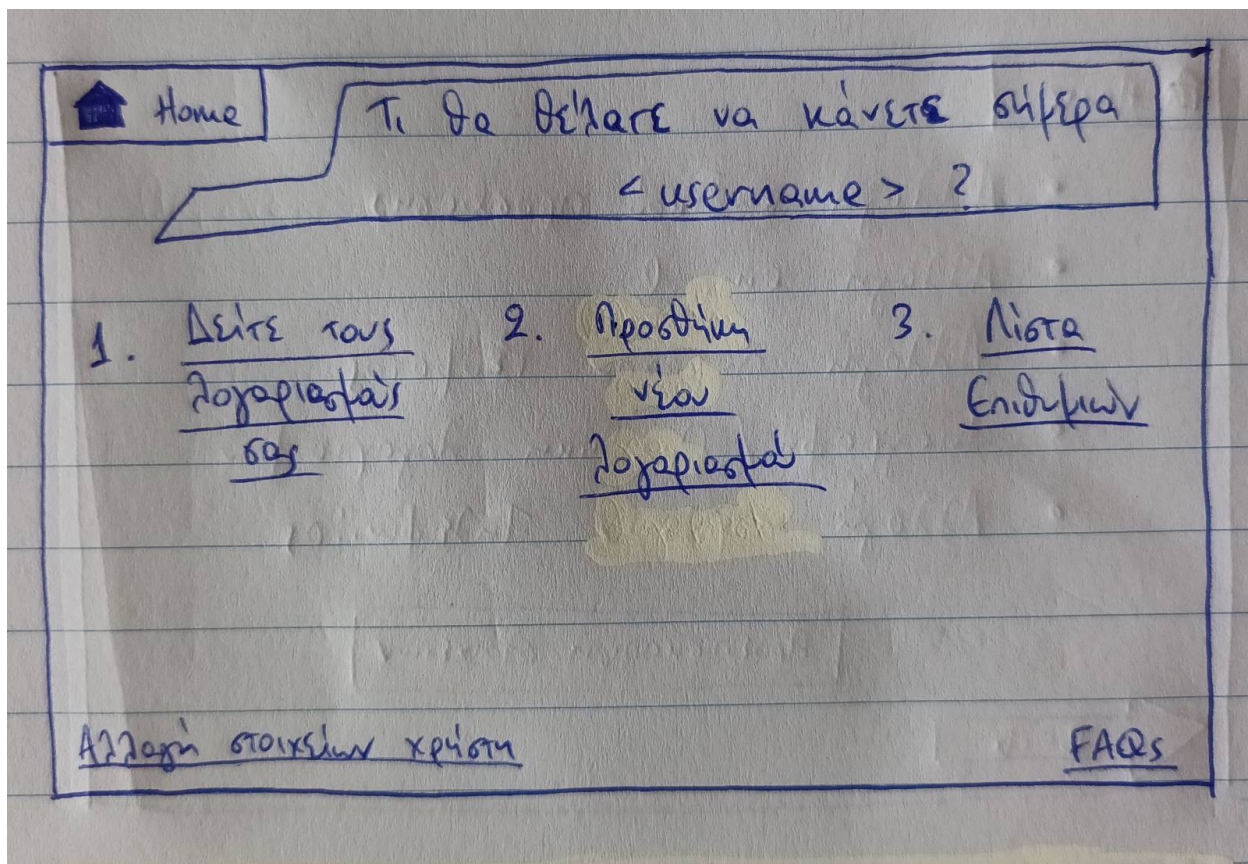 Home
Τι θα θέλατε να κάνετε σήμερα
<username> ?
1. Δείτε τους
λογαριασμούς
σας
2. Προσθήκη
νέου
λογαριασμού
3. Λίστα
Επιθυμιών
Αλλαγή στοιχείων χρήστη
FAQs